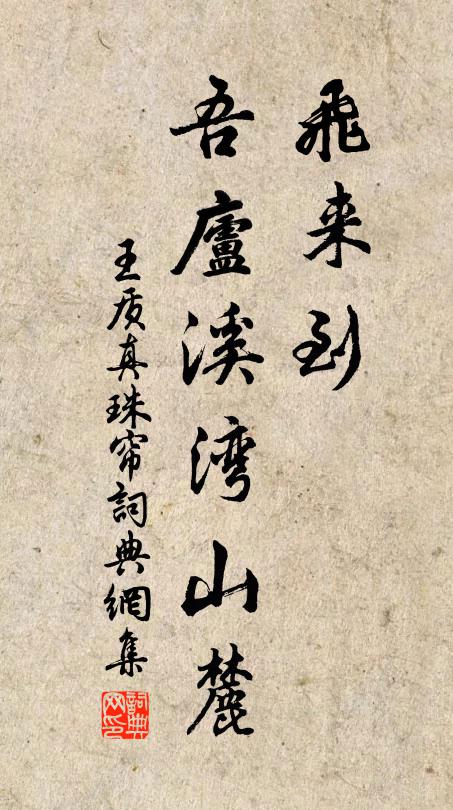 飛来到
吾廬溪湾山麓
王质真珠帘詞典網集
詞典网印